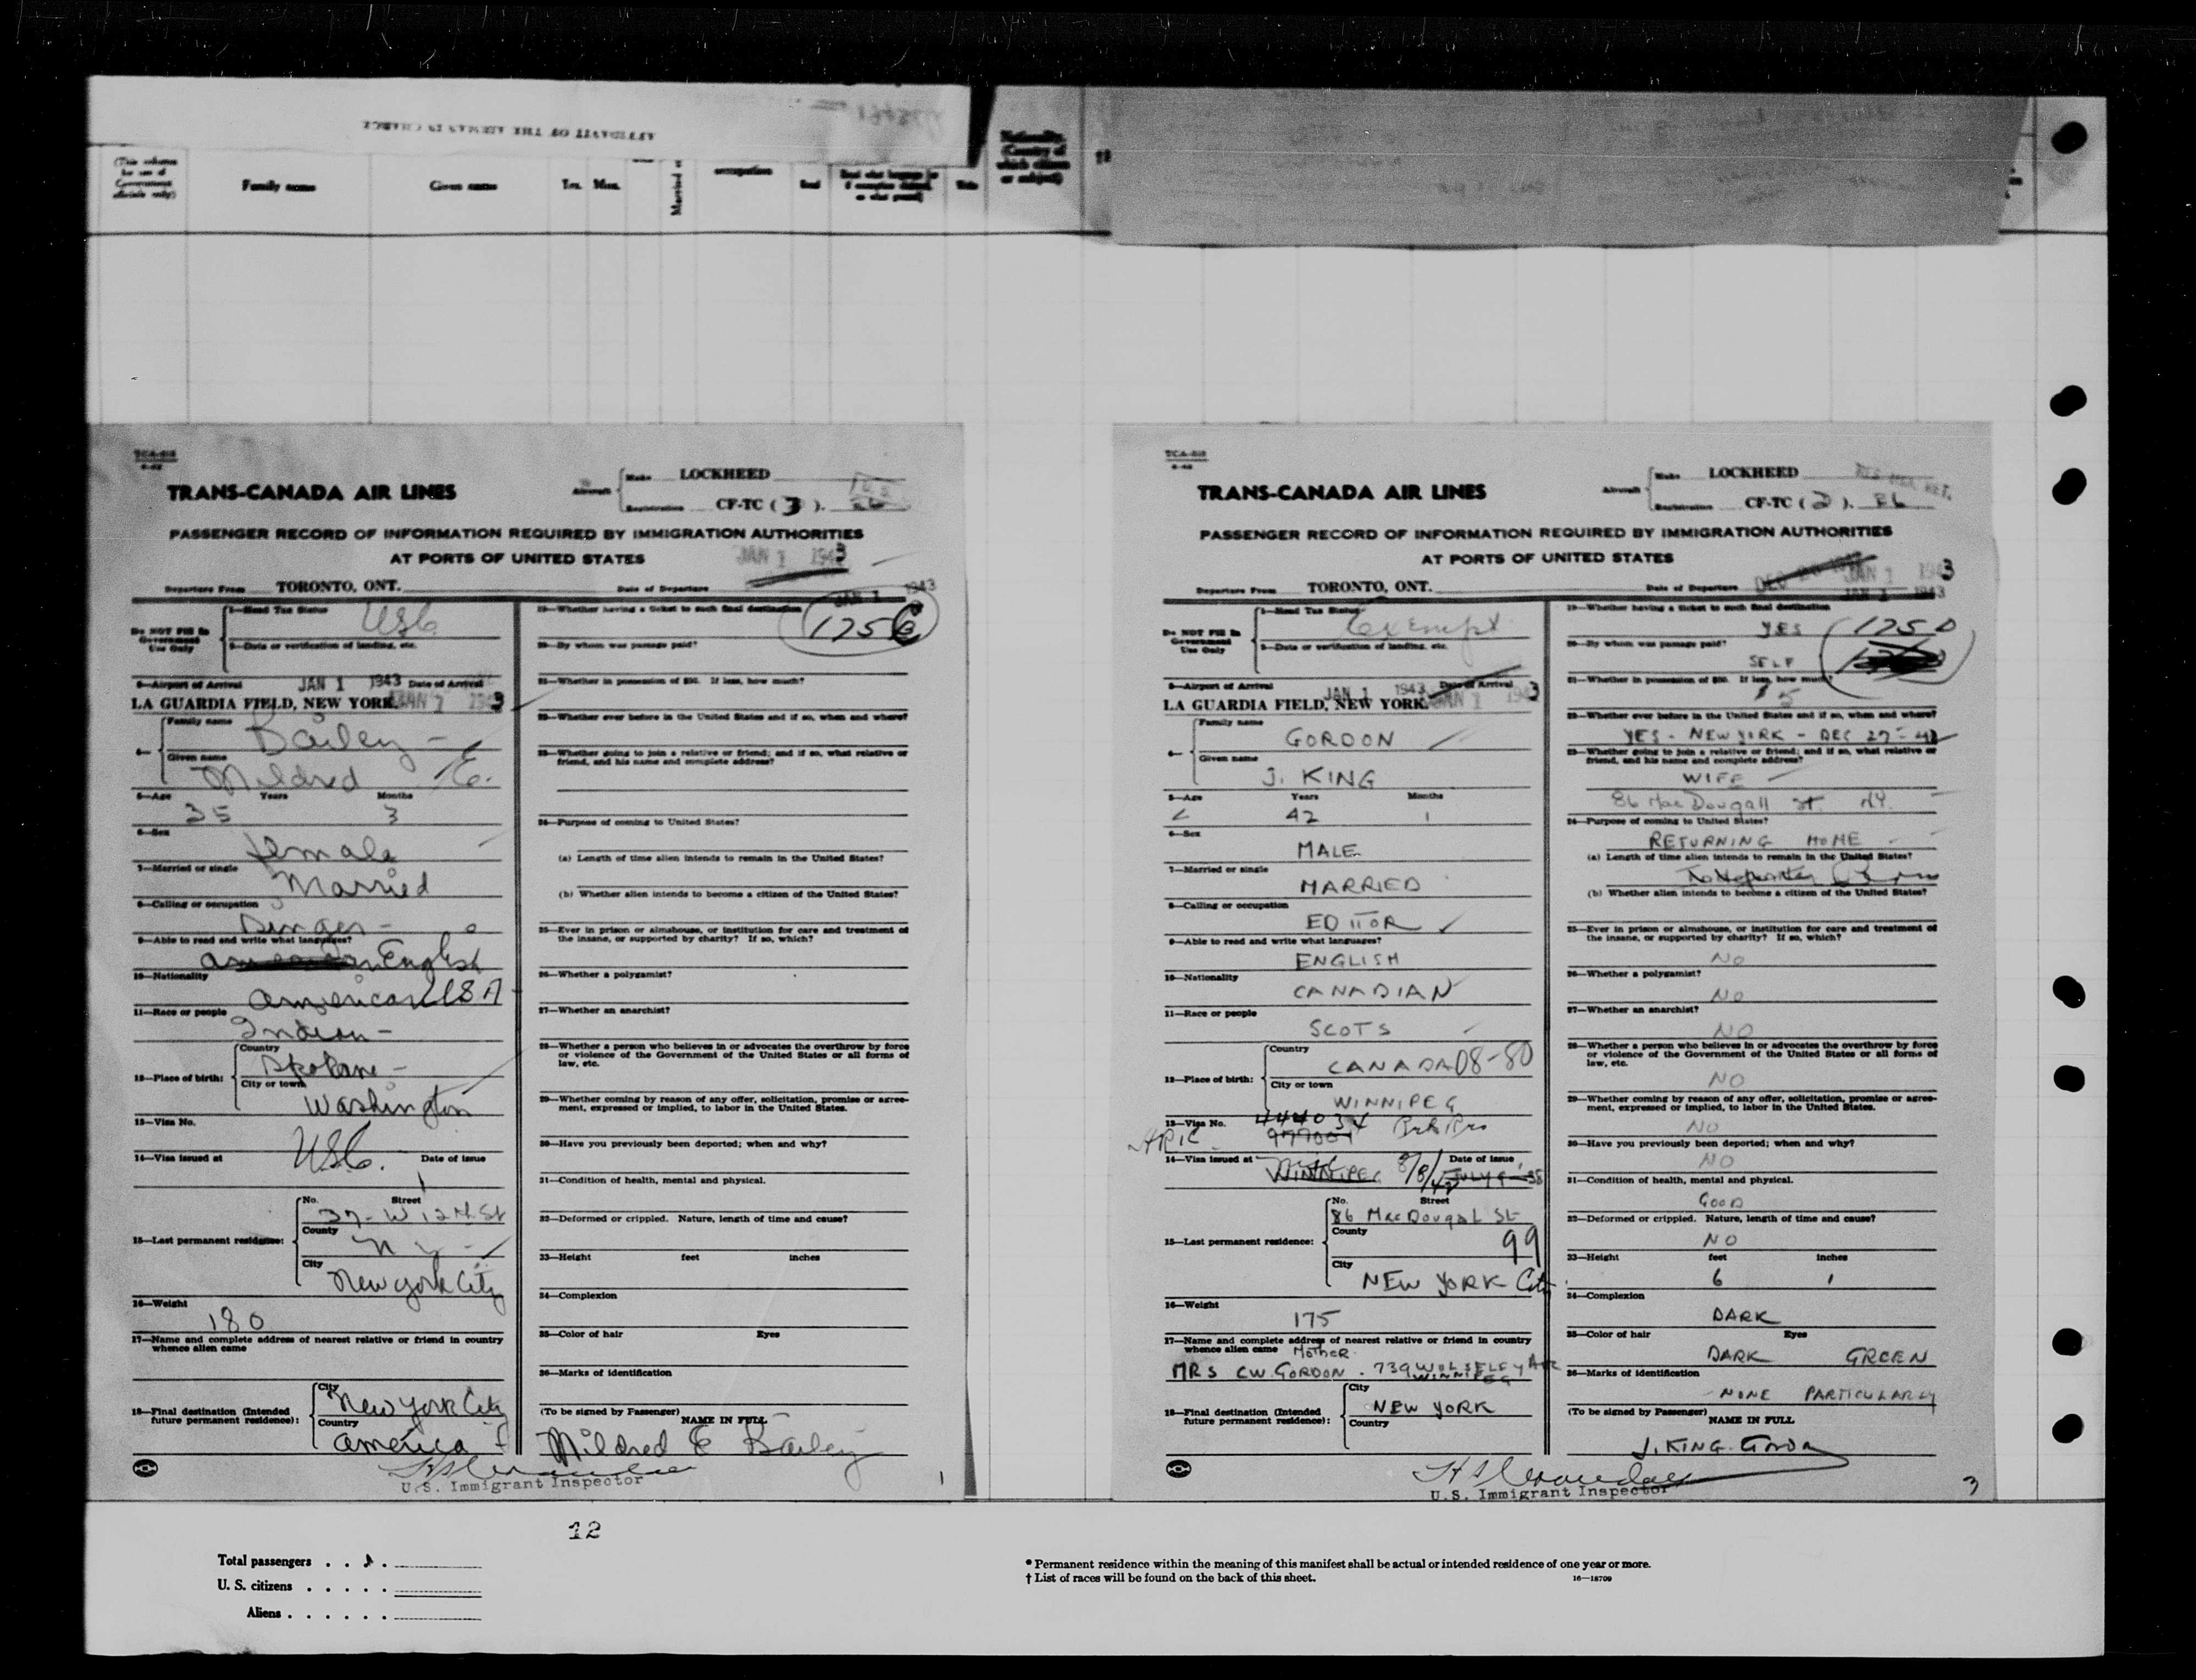 AFFIDAVIT OF THE AIRMAN IN CHARGE
(This column
for use of
Government
officials only)
Family name
Given name
Yrs. Mos.
occupation
Read
Read what language or
if exemption claimed,
on what ground
Write
Nationality.
(Country of
which citizen
or subject)
TCA-
TRANS-CANADA AIR LINES
Aircraft
Make LOCKHEED
Registration CF-TC ( 3 ).
PASSENGER RECORD OF INFORMATION REQUIRED BY IMMIGRATION AUTHORITIES
AT PORTS OF UNITED STATES
JAN 1 1943
Departure From TORONTO, ONT.
Date of Departure
Do NOT Fill In
Government
Use Only
1—Head Tax Status
USC
2—Date or verification of landing, etc.
3—Airport of Arrival JAN 1 1943 Date of Arrival
LA GUARDIA FIELD, NEW YORK. JAN 1 1943
4—
Family name
Bailey -
Given name
Mildred E.
5—Age Years Months
35 3
6—Sex
female
7—Married or single
Married
8—Calling or occupation
Singer -
9—Able to read and write what languages?
English
10—Nationality
American USA
11—Race or people
Indian -
12—Place of birth:
Country
Spokane -
City or town
Washington
13—Visa No.
USC.
14—Visa issued at Date of issue
15—Last permanent residence:
No. Street
37 - W 12th St
County
N Y -
City
New York City
16—Weight
180
17—Name and complete address of nearest relative or friend in country
whence alien came
18—Final destination (Intended
future permanent residence):
City
New York City
Country
America
19—Whether having a ticket to such final destination
JAN 1 1943
175 C
20—By whom was passage paid?
21—Whether in possession of $50. If less, how much?
22—Whether ever before in the United States and if so, when and where?
23—Whether going to join a relative or friend; and if so, what relative or
friend, and his name and complete address?
24—Purpose of coming to United States?
(a) Length of time alien intends to remain in the United States?
(b) Whether alien intends to become a citizen of the United States?
25—Ever in prison or almshouse, or institution for care and treatment of
the insane, or supported by charity? If so, which?
26—Whether a polygamist?
27—Whether an anarchist?
28—Whether a person who believes in or advocates the overthrow by force
or violence of the Government of the United States or all forms of
law, etc.
29—Whether coming by reason of any offer, solicitation, promise or agree-
ment, expressed or implied, to labor in the United States.
30—Have you previously been deported; when and why?
31—Condition of health, mental and physical.
32—Deformed or crippled. Nature, length of time and cause?
33—Height feet inches
34—Complexion
35—Color of hair Eyes
36—Marks of identification
(To be signed by Passenger)
NAME IN FULL
Mildred E Bailey
U.S. Immigrant Inspector
1
TCA-
TRANS-CANADA AIR LINES
Aircraft
Make LOCKHEED
Registration CF-TC ( 2 ).
PASSENGER RECORD OF INFORMATION REQUIRED BY IMMIGRATION AUTHORITIES
AT PORTS OF UNITED STATES
Departure From TORONTO, ONT.
Date of Departure JAN 1 1943
JAN 1 1943
Do NOT Fill In
Government
Use Only
1—Head Tax Status
Exempt
2—Date or verification of landing, etc.
3—Airport of Arrival JAN 1 1943 Date of Arrival
LA GUARDIA FIELD, NEW YORK. JAN 1 1943
4—
Family name
GORDON
Given name
J. KING
5—Age Years Months
42 1
6—Sex
MALE
7—Married or single
MARRIED
8—Calling or occupation
EDITOR
9—Able to read and write what languages?
ENGLISH
10—Nationality
CANADIAN
11—Race or people
SCOTS
12—Place of birth:
Country
CANADA 08-80
City or town
WINNIPEG
13—Visa No.
14—Visa issued at Date of issue
WINNIPEG
15—Last permanent residence:
No. Street
86 MacDougal St
County
99
City
NEW YORK City
16—Weight
175
17—Name and complete address of nearest relative or friend in country
whence alien came MOTHER.
MRS CW. GORDON. 739 WOLSELEY Ave
WINNIPEG
18—Final destination (Intended
future permanent residence):
City
NEW YORK
Country
19—Whether having a ticket to such final destination
YES
175 D
20—By whom was passage paid?
SELF
21—Whether in possession of $50. If less, how much?
$5
22—Whether ever before in the United States and if so, when and where?
YES - NEW YORK - DEC 27 - 42
23—Whether going to join a relative or friend; and if so, what relative or
friend, and his name and complete address?
WIFE
86 MacDougall St. NY.
24—Purpose of coming to United States?
RETURNING HOME
(a) Length of time alien intends to remain in the United States?
(b) Whether alien intends to become a citizen of the United States?
25—Ever in prison or almshouse, or institution for care and treatment of
the insane, or supported by charity? If so, which?
NO
26—Whether a polygamist?
NO
27—Whether an anarchist?
NO
28—Whether a person who believes in or advocates the overthrow by force
or violence of the Government of the United States or all forms of
law, etc.
NO
29—Whether coming by reason of any offer, solicitation, promise or agree-
ment, expressed or implied, to labor in the United States.
NO
30—Have you previously been deported; when and why?
NO
31—Condition of health, mental and physical.
GOOD
32—Deformed or crippled. Nature, length of time and cause?
NO
33—Height feet inches
6 1
34—Complexion
DARK
35—Color of hair Eyes
DARK GREEN
36—Marks of identification
NONE PARTICULARLY
(To be signed by Passenger)
NAME IN FULL
J. KING Gordon
U.S. Immigrant Inspector
3
12
Total passengers
U. S. citizens
Aliens
* Permanent residence within the meaning of this manifest shall be actual or intended residence of one year or more.
† List of races will be found on the back of this sheet.
16—18709